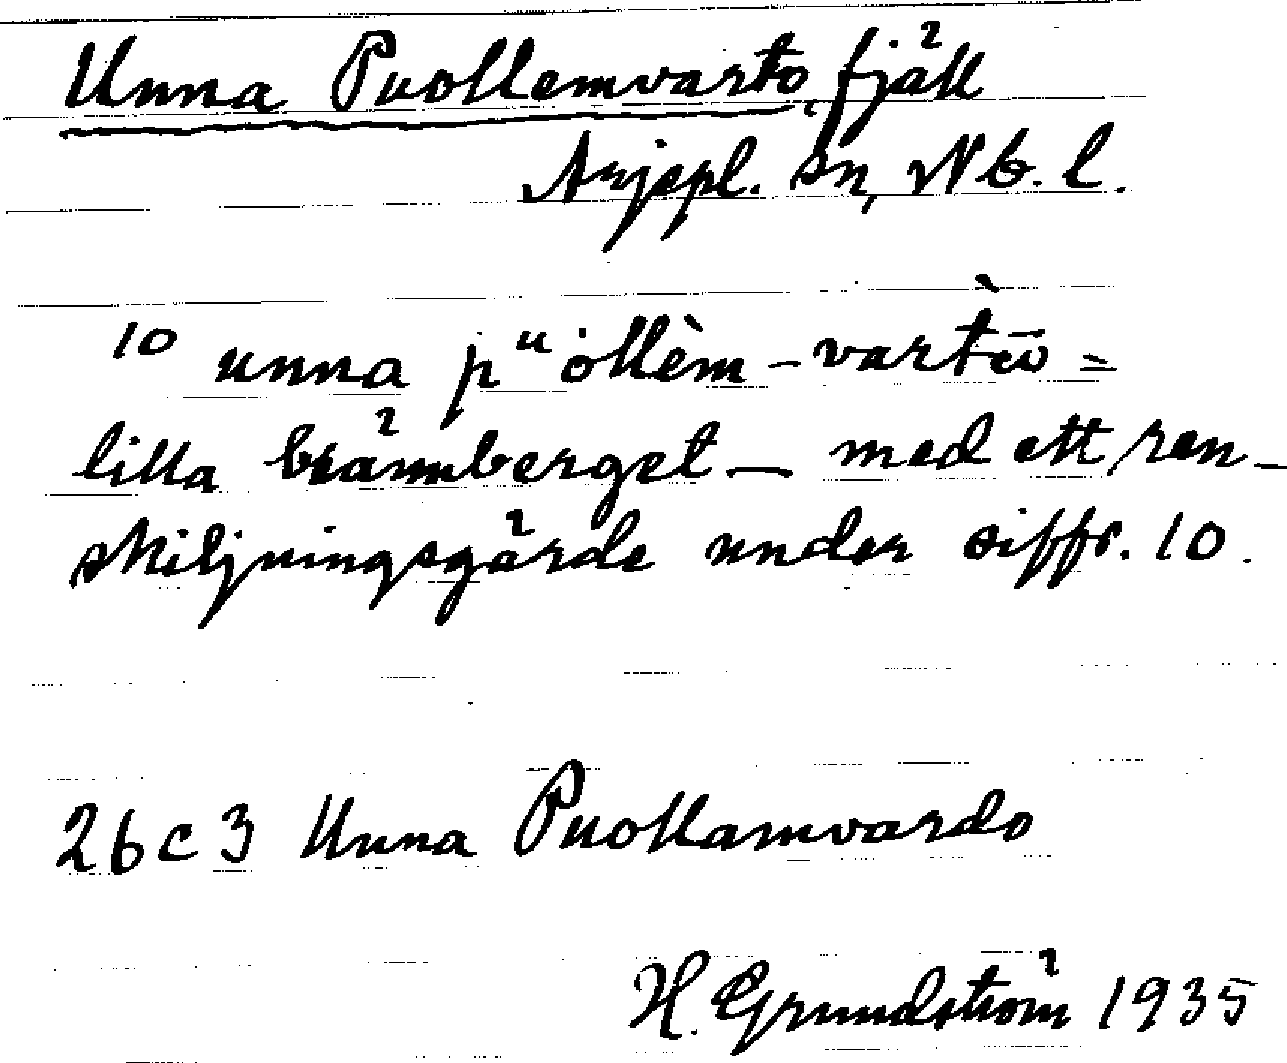 Unna Puollemvarto, fjäll
Arjepl. sn, Nb. l.
10 unna pᵘòllèm-vartēù =
lilla brännberget — med ett ren-
skiljningsgärde under siffr. 10.
26 c 3 Unna Puollamvardo
H. Grundström 1935